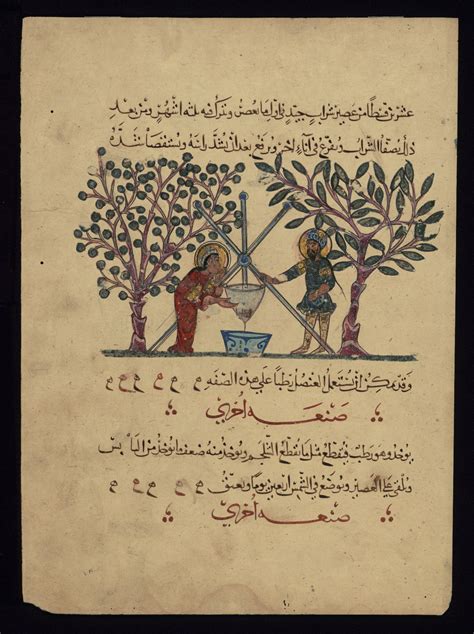 عشرين قسطا من عصير شراب جيد ثلثه اشهر ومن بعد
ذلك يصفا الشراب ويفرغ في اناء اخر ويرفع بعد ان يشد راسه ويستقصا شده
وقد يمكن ان يستعمل العنصل رطبا علي هذه الصفه
صنعه اخري
يوخذ وهو رطب فيقطع مثل ما يقطع الشلجم ويوخذ منه ضعف ما يوخذ من اليابس
ويلقى العصير ويوضع في الشمس اربعين يوما ويعتق
صنعه اخري